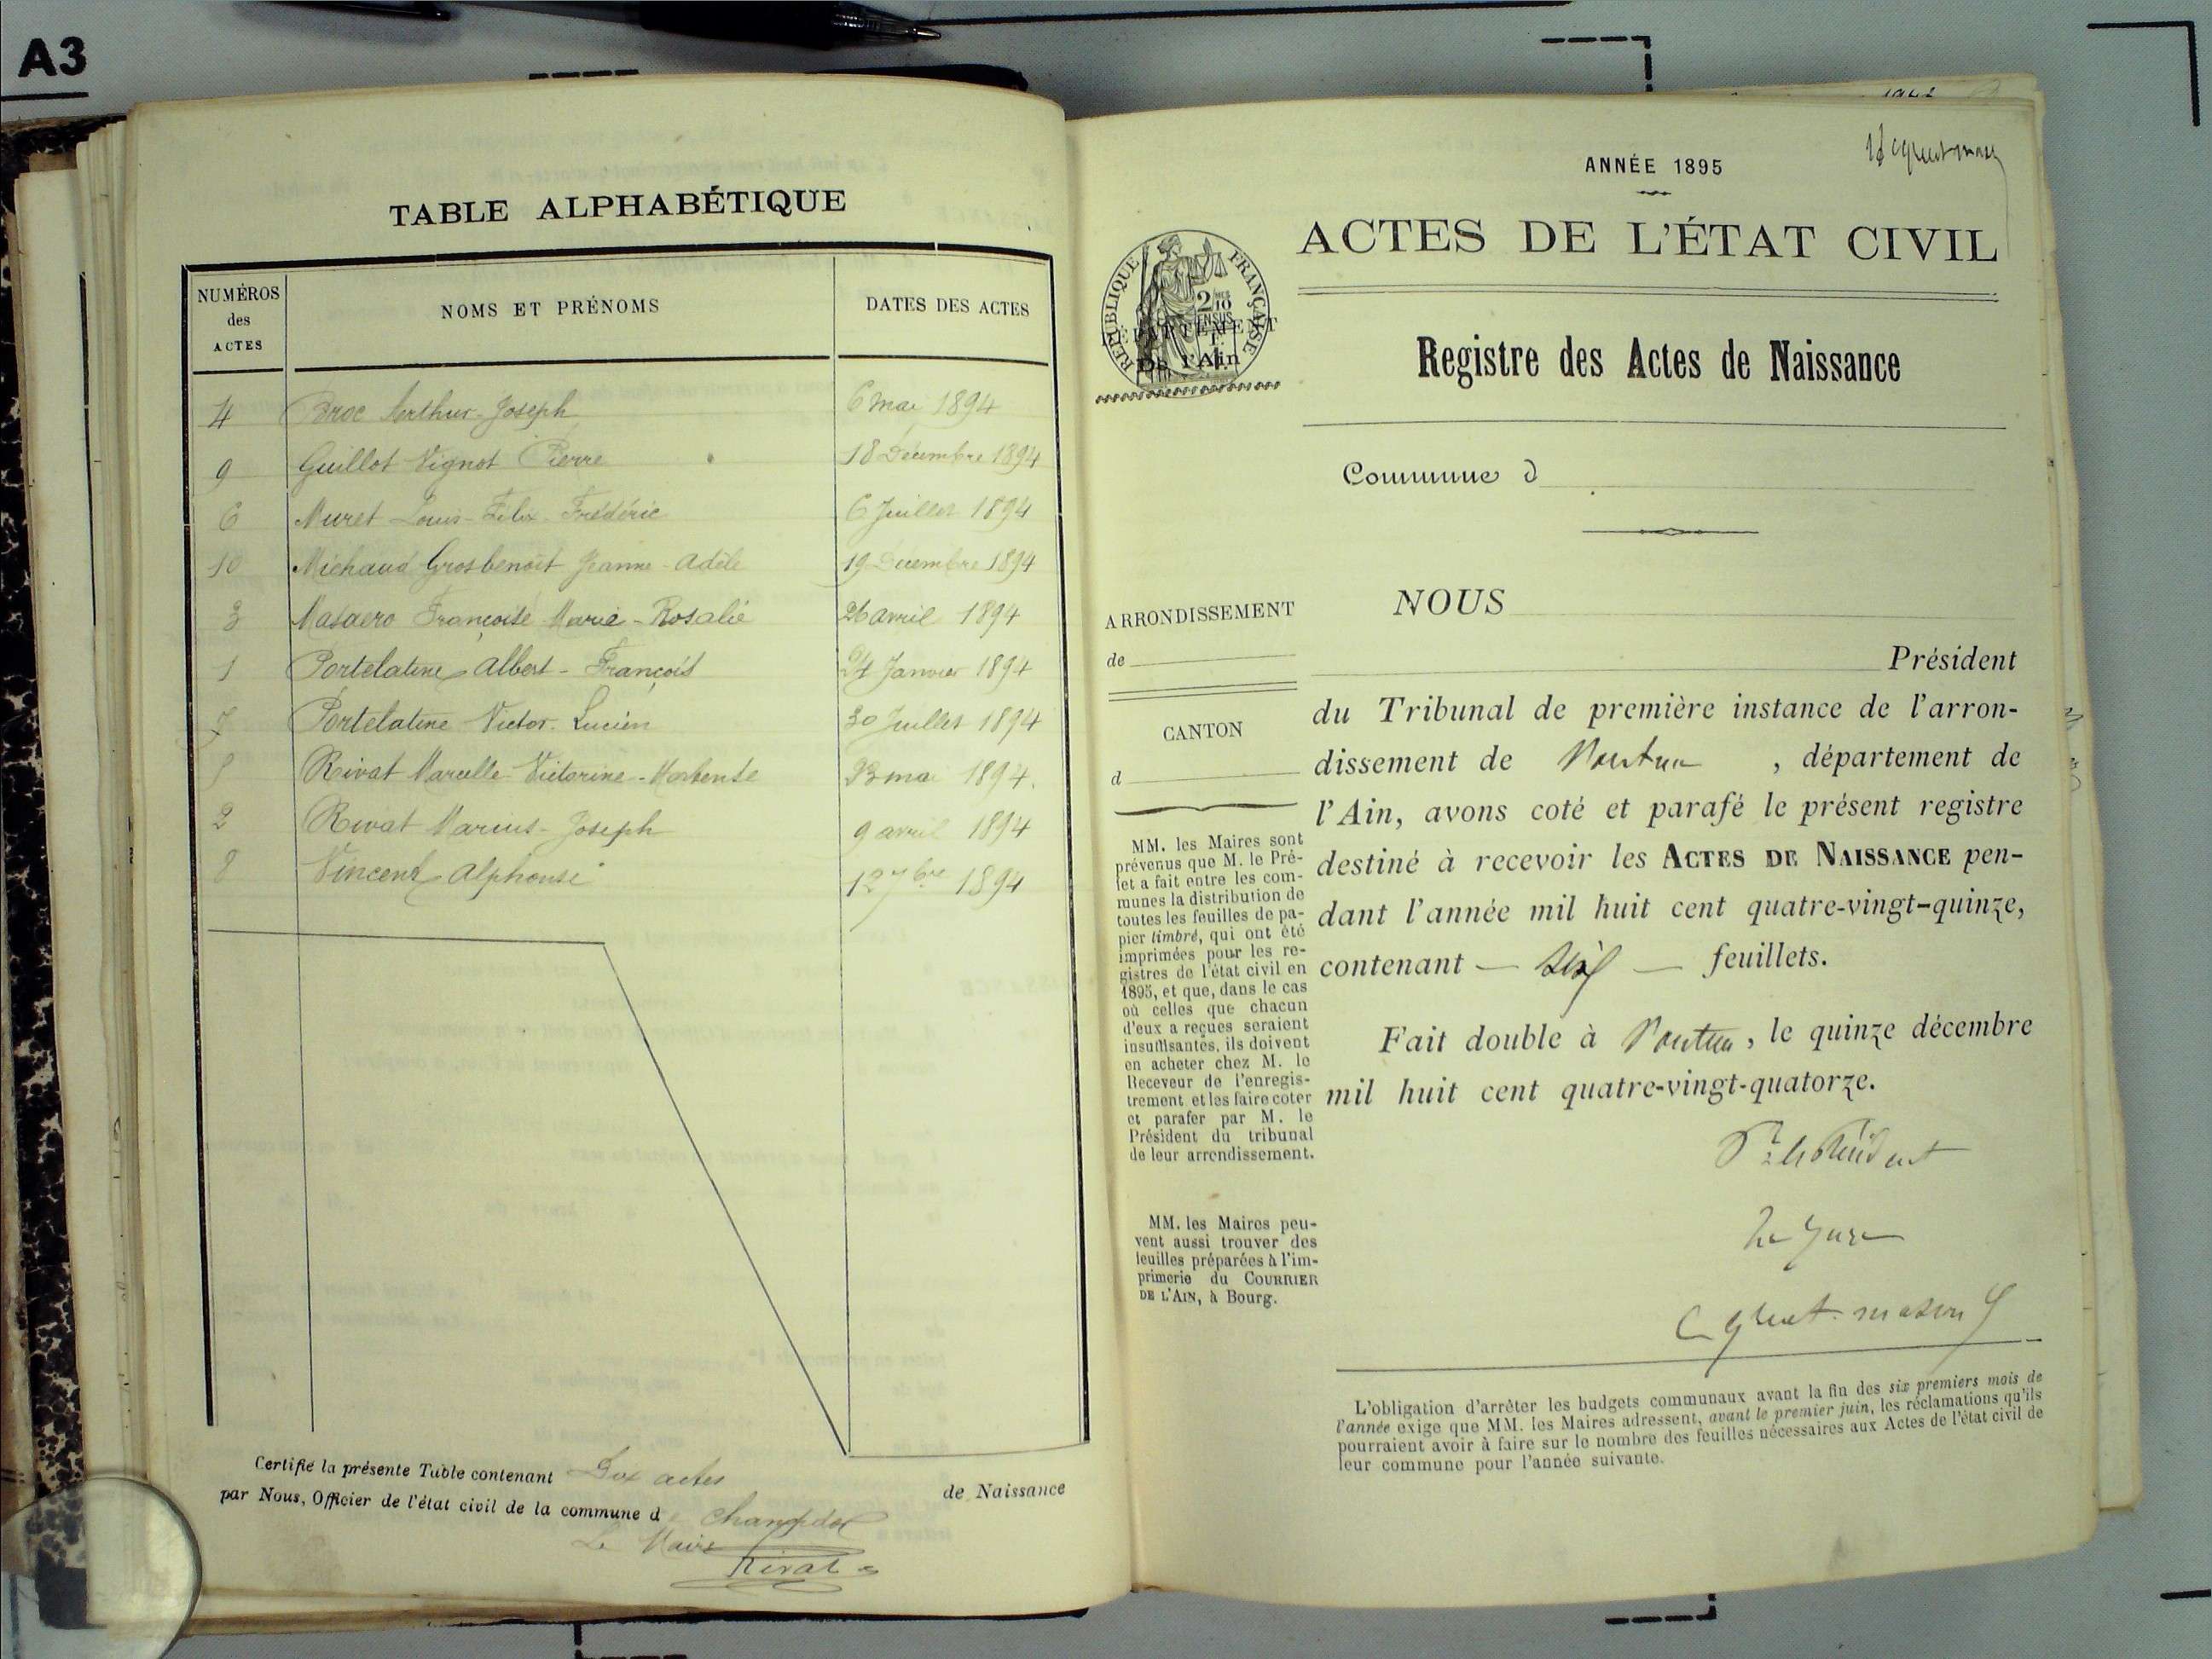 A3
TABLE ALPHABÉTIQUE
NUMÉROS des ACTES NOMS ET PRÉNOMS DATES DES ACTES
4 Broc Arthur-Joseph 6 mai 1894
9 Guillot Vignot Pierre 18 Décembre 1894
6 Muret Louis-Felix-Frédéric 6 Juillet 1894
10 Michaud Grosbenoit Jeanne-Adèle 19 Décembre 1894
3 Masaero Françoise Marie-Rosalie 26 avril 1894
1 Portelatine Albert-François 24 Janvier 1894
7 Portelatine Victor-Lucien 30 Juillet 1894
Rivat Marcelle Victorine-Hortense 23 mai 1894.
2 Rivat Marius-Joseph 9 avril 1894
8 Vincent Alphonse 12 7bre 1894
Certifié la présente Table contenant Dix actes de Naissance
par Nous, Officier de l'état civil de la commune de
Le Maire
Rivat
ANNÉE 1895
ACTES DE L'ÉTAT CIVIL
RÉPUBLIQUE FRANÇAISE
DÉPARTEMENT
De l'Ain
Registre des Actes de Naissance
Commune d
ARRONDISSEMENT
de
CANTON
d
MM. les Maires sont
prévenus que M. le Pré-
fet a fait entre les com-
munes la distribution de
toutes les feuilles de pa-
pier timbré, qui ont été
imprimées pour les re-
gistres de l'état civil en
1895, et que, dans le cas
où celles que chacun
d'eux a reçues seraient
insuffisantes, ils doivent
en acheter chez M. le
Receveur de l'enregis-
trement et les faire coter
et parafer par M. le
Président du tribunal
de leur arrondissement.
MM. les Maires peu-
vent aussi trouver des
feuilles préparées à l'im-
primerie du COURRIER
DE L'AIN, à Bourg.
NOUS
Président
du Tribunal de première instance de l'arron-
dissement de Nantua, département de
l'Ain, avons coté et parafé le présent registre
destiné à recevoir les ACTES DE NAISSANCE pen-
dant l'année mil huit cent quatre-vingt-quinze,
contenant — six — feuillets.
Fait double à Nantua, le quinze décembre
mil huit cent quatre-vingt-quatorze.
Pr le Président
Le Juge
L'obligation d'arrêter les budgets communaux avant la fin des six premiers mois de
l'année exige que MM. les Maires adressent, avant le premier juin, les réclamations qu'ils
pourraient avoir à faire sur le nombre des feuilles nécessaires aux Actes de l'état civil de
leur commune pour l'année suivante.